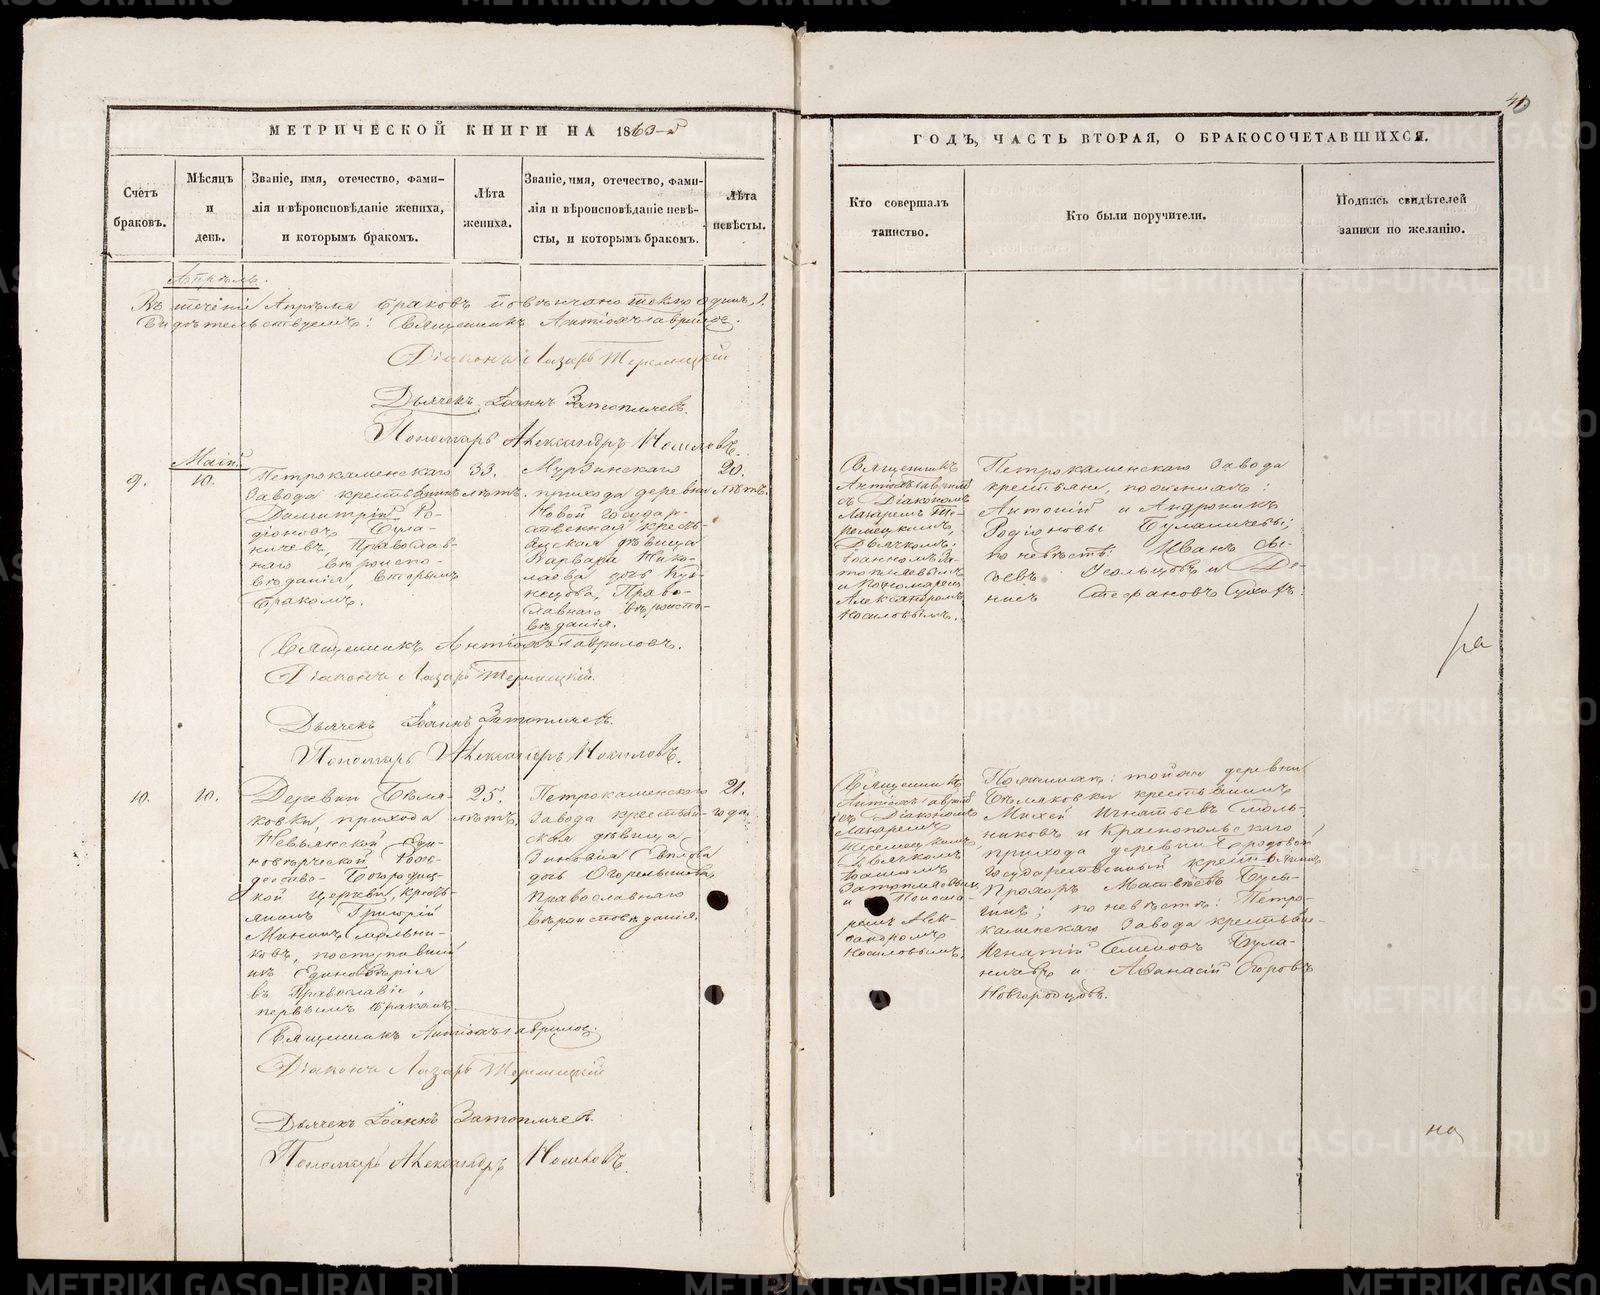 40
МЕТРИЧЕСКОЙ КНИГИ НА 1863-й
ГОДЪ, ЧАСТЬ ВТОРАЯ, О БРАКОСОЧЕТАВШИХСЯ.
Счетъ
браковъ.
Мѣсяцъ
и
день.
Званіе, имя, отечество, фами-
лія и вѣроисповѣданіе жениха,
и которымъ бракомъ.
Лѣта
жениха.
Званіе, имя, отечество, фами-
лія и вѣроисповѣданіе невѣ-
сты, и которымъ бракомъ.
Лѣта
невѣсты.
Кто совершалъ
таинство.
Кто были поручители.
Подпись свидѣтелей
записи по желанію.
Апрѣль.
Въ теченіи Апрѣля браковъ повѣнчано токмо одинъ, 1.
Свидѣтельствуемъ: Священникъ Антіохъ Гавриловъ.
Діаконъ Лазарь Теремецкій
Дьячекъ Іоаннъ Затопляевъ.
Пономарь Александръ Носиловъ.
Маій
9.
10.
Петрокаменскаго
завода крестьянинъ
Димитрій Ро-
діоновъ Була-
ничевъ, Православ-
наго вѣроиспо-
вѣданія, вторымъ
бракомъ.
33.
лѣтъ.
Мурзинскаго
прихода деревни
Новой государ-
ственная кресть-
янская дѣвица
Варвара Нико-
лаева дочь Куз-
нецова, Право-
славнаго вѣроиспо-
вѣданія.
20.
лѣтъ.
Священникъ
Антіохъ Гаврилов
съ Діакономъ
Лазаремъ Те-
ремецкимъ,
Дьячкомъ
Іоанномъ За-
топляевымъ
и Пономаремъ
Александромъ
Носиловымъ.
Петрокаменскаго Завода
крестьяне, по женихѣ:
Антоній и Андроникъ
Родіоновы Буланичевы;
по невѣстѣ: Иванъ
Усольцовъ и Де-
нисъ Стефановъ Суховъ.
Священникъ Антіохъ Гавриловъ.
Діаконъ Лазарь Теремецкій.
Дьячекъ Іоаннъ Затопляевъ.
Пономарь Александръ Носиловъ.
10.
10.
Деревни Беля-
ковки, прихода
Невьянской Еди-
новѣрческой Рож-
дество-Богородиц-
кой Церкви, кресть-
янинъ Григорій
Мининъ Мельни-
ковъ, поступившій
изъ Единовѣрія
въ Православіе,
первымъ бракомъ.
25.
лѣтъ.
Петрокаменскаго
завода крестьян-
ская дѣвица
Зиновія
дочь Огорельшова,
Православнаго
вѣроисповѣданія.
21.
года.
Священникъ
Антіохъ Гаврилов
съ Діакономъ
Лазаремъ
Теремецкимъ,
Дьячкомъ
Іоанномъ
Затопляевымъ
и Понома-
ремъ Алек-
сандромъ
Носиловымъ.
По женихѣ: той же деревни
Беляковки крестьянинъ
Михей Игнатьевъ Мель-
никовъ и Краснопольскаго
прихода деревни Бродовой
государственный крестьянинъ
Прохоръ Матвѣевъ
по невѣстѣ: Петро-
каменскаго Завода крестьяне
Игнатій Семеновъ Була-
ничевъ и Афанасій Егоровъ
Новгородцовъ.
Священникъ Антіохъ Гавриловъ.
Діаконъ Лазарь Теремецкій
Дьячекъ Іоаннъ Затопляевъ.
Пономарь Александръ Носиловъ.
на
METRIKI.GASO-URAL.RU